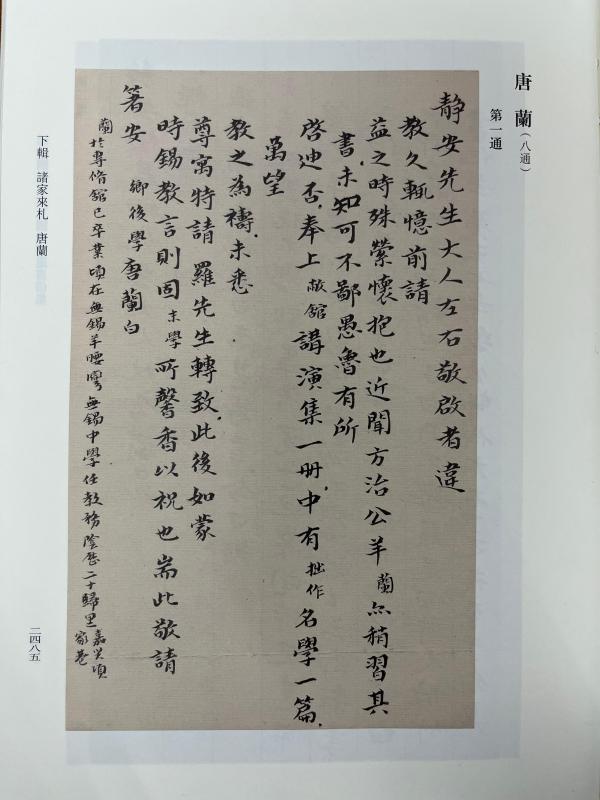 唐 蘭（八通）
第一通
静安先生大人左右敬啟者違
教久輒憶前請
益之時殊縈懷抱也近聞方治公羊蘭亦稍習其
書未知可不鄙愚魯有所
啓迪否奉上敝館講演集一册中有拙作名學一篇
萬望
教之為禱未悉
尊寓特請羅先生轉致此後如蒙
時錫教言則固末學所馨香以祝也耑此敬請
箸安 鄉後學唐蘭白
蘭於專脩館已卒業頃在無錫羊腰灣無錫中學任教務陰歷二十歸里嘉興項家巷
下輯 諸家來札 唐蘭
二四八五